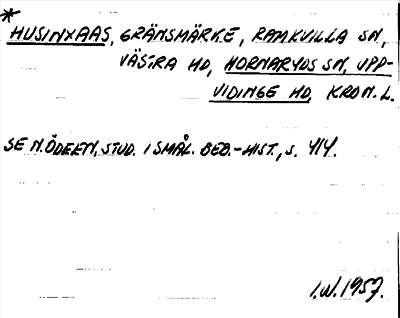 *
HUSINXAAS, GRÄNSMÄRKE, RAMKVILLA SN,
VÄSTRA HD, HORNARYDS SN, UPP-
VIDINGE HD, KRON. L.
SE N. ÖDEEN, STUD. I SMÅL. BEB.-HIST., S. 414.
I.W. 1957.